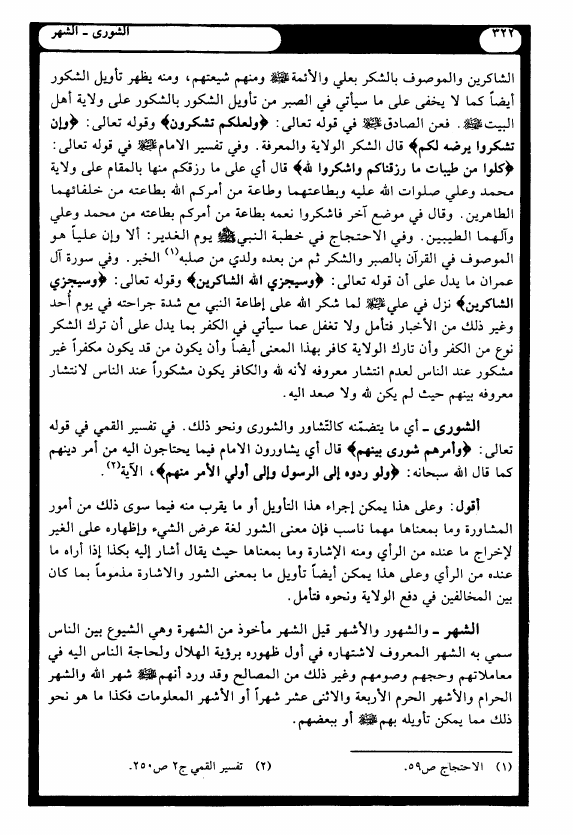 ٣٢٢
الشورى ـ الشهر
الشاكرين والموصوف بالشكر بعلي والأئمة ﷺ ومنهم شيعتهم، ومنه يظهر تأويل الشكور
أيضاً كما لا يخفى على ما سيأتي في الصبر من تأويل الشكور بالشكور على ولاية أهل
البيت ﷺ. فعن الصادق ﷺ في قوله تعالى: ﴿ولعلكم تشكرون﴾ وقوله تعالى: ﴿وإن
تشكروا يرضه لكم﴾ قال الشكر الولاية والمعرفة. وفي تفسير الامام ﷺ في قوله تعالى:
﴿كلوا من طيبات ما رزقناكم واشكروا لله﴾ قال أي على ما رزقكم منها بالمقام على ولاية
محمد وعلي صلوات الله عليه وبطاعتهما وطاعة من أمركم الله بطاعته من خلفائهما
الطاهرين. وقال في موضع آخر فاشكروا نعمه بطاعة من أمركم بطاعته من محمد وعلي
وآلهما الطيبين. وفي الاحتجاج في خطبة النبي ﷺ يوم الغدير: ألا وإن علياً هو
الموصوف في القرآن بالصبر والشكر ثم من بعده ولدي من صلبه(١) الخبر. وفي سورة آل
عمران ما يدل على أن قوله تعالى: ﴿وسيجزي الله الشاكرين﴾ وقوله تعالى: ﴿وسيجزي
الشاكرين﴾ نزل في علي ﷺ لما شكر الله على إطاعة النبي مع شدة جراحته في يوم أُحد
وغير ذلك من الأخبار فتأمل ولا تغفل عما سيأتي في الكفر بما يدل على أن ترك الشكر
نوع من الكفر وأن تارك الولاية كافر بهذا المعنى أيضاً وأن يكون من قد يكون مكفراً غير
مشكور عند الناس لعدم انتشار معروفه لأنه لله والكافر يكون مشكوراً عند الناس لانتشار
معروفه بينهم حيث لم يكن لله ولا صعد اليه.
الشورى ـ أي ما يتضمّنه كالتّشاور والشورى ونحو ذلك. في تفسير القمي في قوله
تعالى: ﴿وأمرهم شورى بينهم﴾ قال أي يشاورون الامام فيما يحتاجون اليه من أمر دينهم
كما قال الله سبحانه: ﴿ولو ردوه إلى الرسول وإلى أولي الأمر منهم﴾، الآية(٢).
أقول: وعلى هذا يمكن إجراء هذا التأويل أو ما يقرب منه فيما سوى ذلك من أمور
المشاورة وما بمعناها مهما ناسب فإن معنى الشور لغة عرض الشيء وإظهاره على الغير
لإخراج ما عنده من الرأي ومنه الإشارة وما بمعناها حيث يقال أشار إليه بكذا إذا أراه ما
عنده من الرأي وعلى هذا يمكن أيضاً تأويل ما بمعنى الشور والاشارة مذموماً بما كان
بين المخالفين في دفع الولاية ونحوه فتأمل.
الشهر ـ والشهور والأشهر قيل الشهر مأخوذ من الشهرة وهي الشيوع بين الناس
سمي به الشهر المعروف لاشتهاره في أول ظهوره برؤية الهلال ولحاجة الناس اليه في
معاملاتهم وحجهم وصومهم وغير ذلك من المصالح وقد ورد أنهم ﷺ شهر الله والشهر
الحرام والأشهر الحرم الأربعة والاثنى عشر شهراً أو الأشهر المعلومات فكذا ما هو نحو
ذلك مما يمكن تأويله بهم ﷺ أو ببعضهم.
(١) الاحتجاج ص٥٩.
(٢) تفسير القمي ج٢ ص٢٥٠.